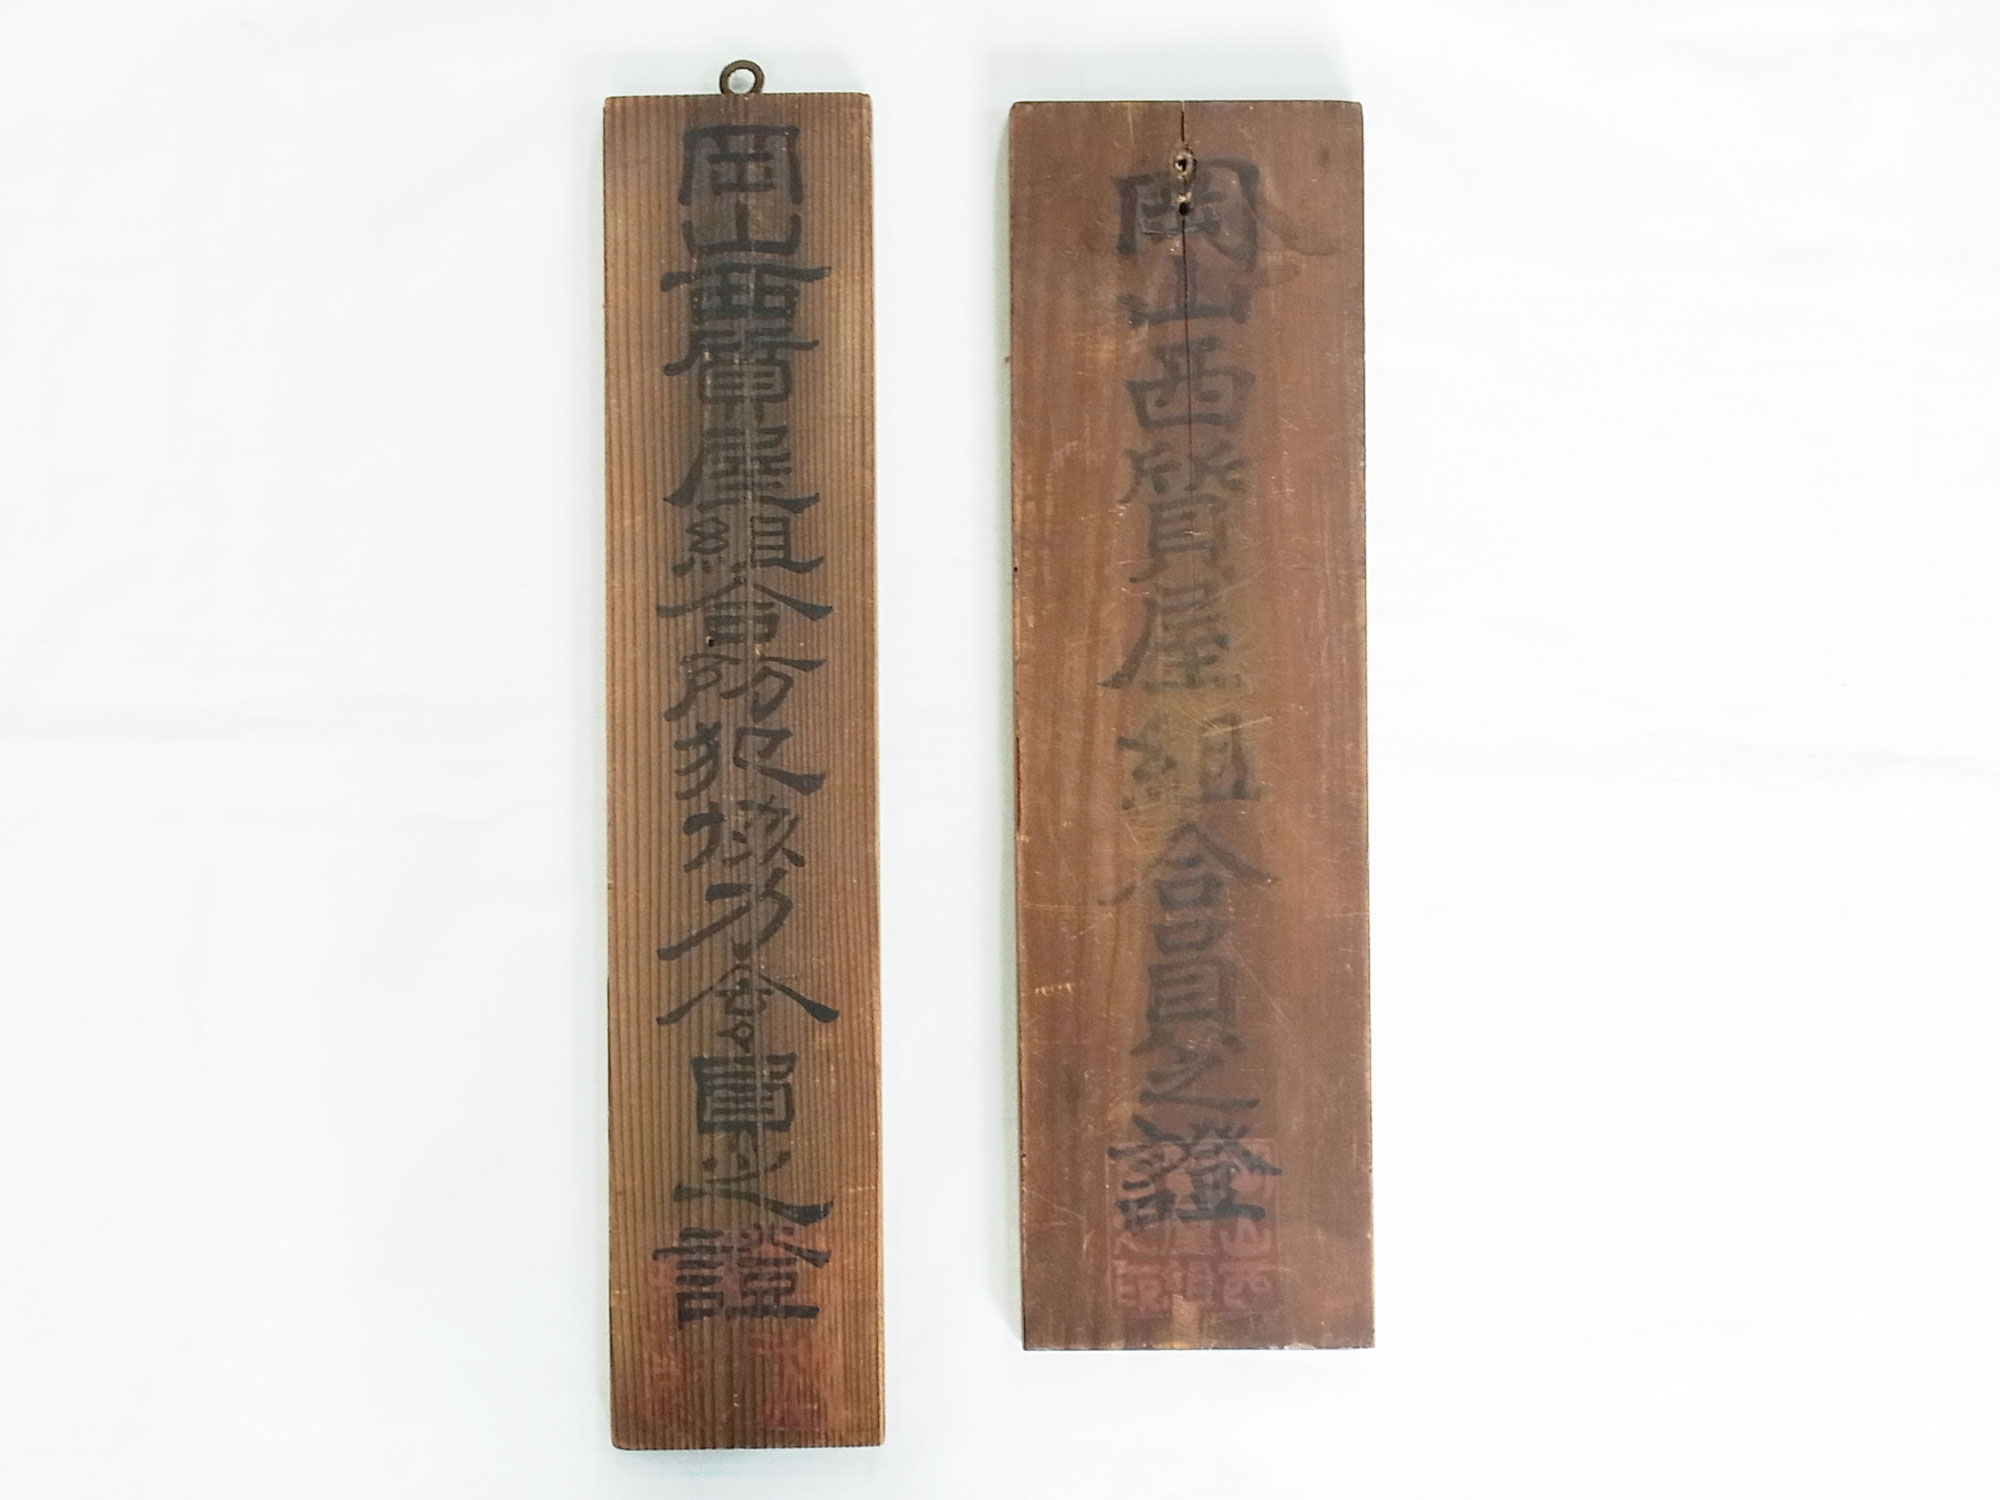 岡山西質屋組合防犯協力會員之證
岡山西質屋組合員之證